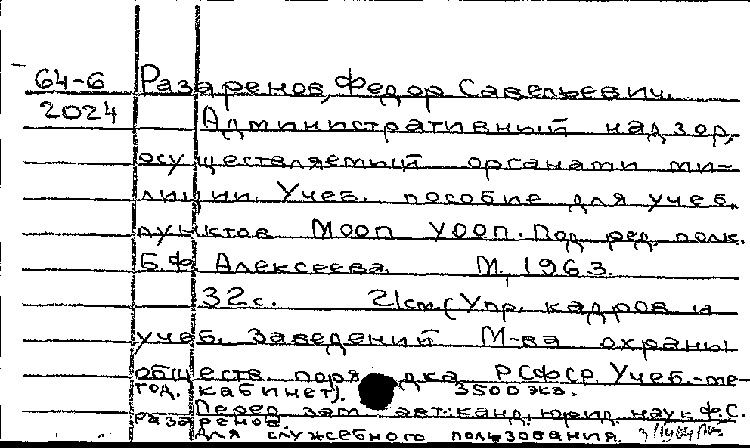 64-6 Разаренов, Федор Савельевич.
2024 Административный надзор,
осуществляемый органами ми-
лиции. Учеб. пособие для учеб.
пунктов МООП УООП. Под ред. полк.
Б.Ф. Алексеева. М., 1963.
32 с. 21 см (Упр. кадров и
учеб. заведений М-ва охраны
обществ. порядка РСФСР. Учеб.-ме-
тод. кабинет). 3500 экз.
Перед загл. авт.: канд. юрид. наук Ф.С.
Разаренов
Для служебного пользования.